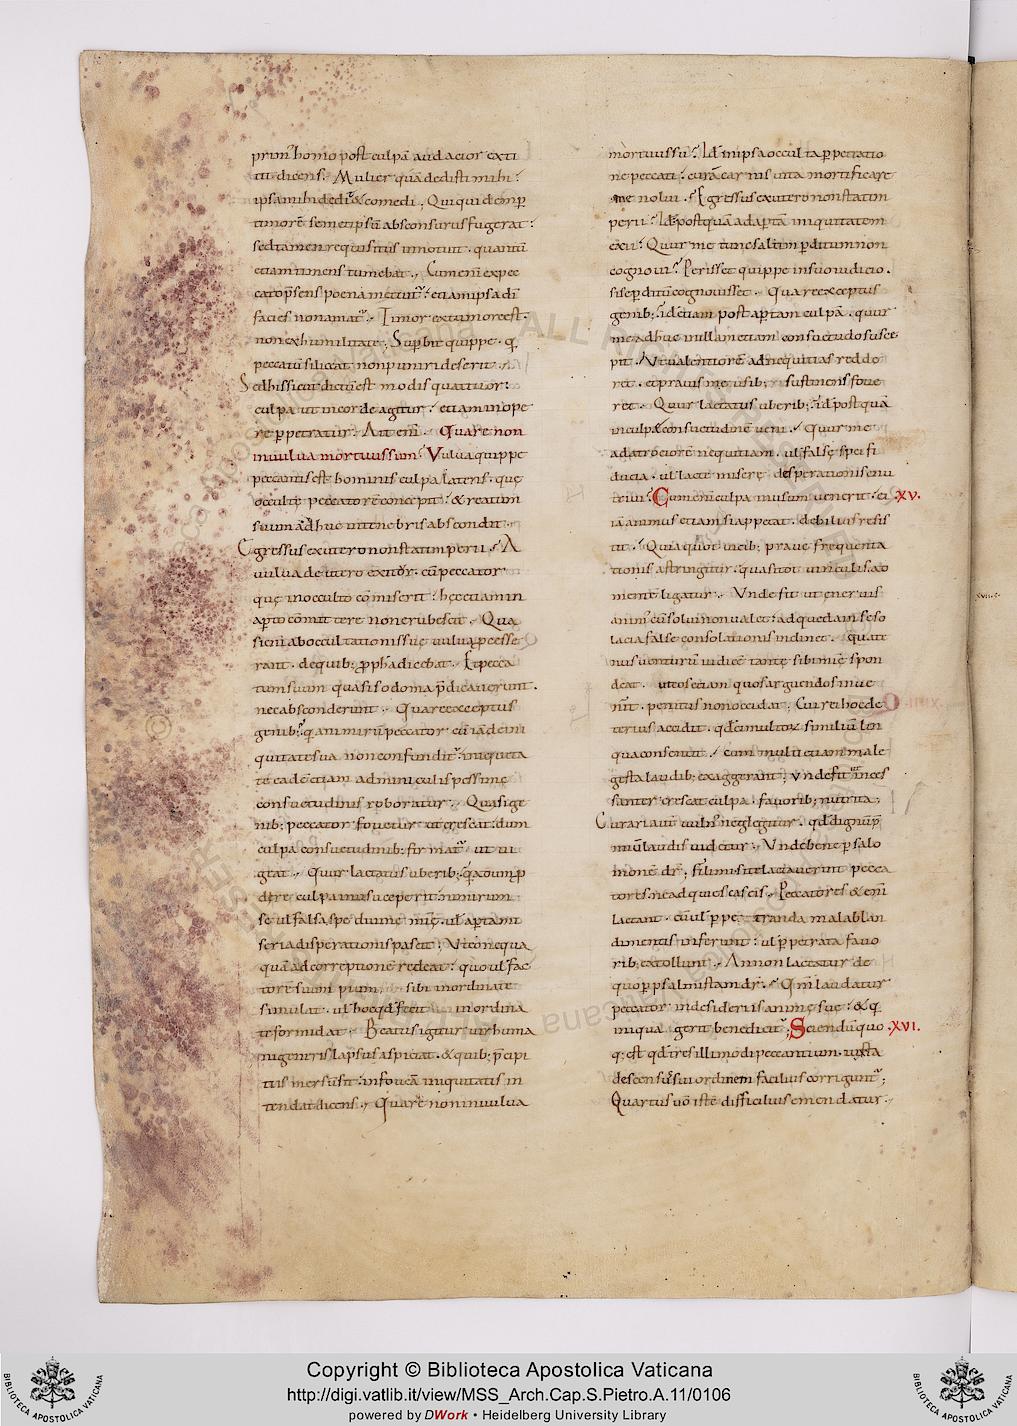 prim' homo post culpā audacior exti
tit dicens; Mulier quā dedisti mihi
ipsa mihi dedit & comedi; Qui quidem p
timorē semetipsū absconsurus fugerat;
sed tamen requisitus innotuit quantū
etiam timens tumebat. Cum enī ex pec
cato psens poena metuit' & etiam ipsa dī
facies non amat'. Timor ex timore est.
non ex humilitate; Supbit quippe. q
peccatū si liceat non puniri deserit
Sed his sicut dictū est modis quattuor:
culpa ut in corde agitur etiam in ope
re ppetratur. Ait enī. Quare non
in vulva mortuus sum? Vulva quippe
peccantis est hominis culpa latens. quę
occultę peccatorē concepit & reatum
suum adhuc in tenebris abscondit.
Egressus ex utero non statim perii? A
vulva de utero exitor cū peccator
quę in occulto cōmiserit hęc etiam in
apto cōmittere non erubescit. Qua
si enī ab occultationis suę vulva pcesse
rant de quib; ppha dicebat. Et pecca
tum suum quasi sodoma pdicaverunt.
nec absconderunt. Quare exceptus
genib;? q nimirū peccator cū iā de ini
quitate sua non confundit' iniquita
te eadē etiam adminiculis pessimę
consuetudinis roboratur. Quasi ge
nib; peccator fovetur ut crescat: dum
culpa consuetudinib: firmat' ut vi
geat. Cur lactatus uberib;
culpa in usu ceperit nimirum
se ul falsa spe divinę mię. ul apta mi
seria disperationis pascit; Ut nequa
quā ad correptionē redeat: quo ul fac
torē suum pium sibi inordinate
simulat ul hoc qd fecit inordina
te formidat. Beatus igitur vir huma
ni generis lapsus aspiciat. & quib; pcipi
tiis mersus sit in foveā iniquitatis in
tendat dicens. Quare non in vulva
mortuus sū? Id ē in ipsa occulta ppetratio
ne peccati cur ā carnis vita mortificare
me nolui. Egressus ex utero non statim
perii? Id ē postquā ad aptā iniquitatem
exii: Quur me tunc saltim pditum non
cognovi? Perisset quippe in suo iudicio.
si se pditū cognovisset. Quare exceptus
genib; id ē etiam post aptam culpā. quur
me adhuc in illam etiam consuetudo susce
pit. Ut valentiorē ad nequitias redde
ret. et pravis me usib; sustinens fove
ret. Quur lactatus uberib; id ē post quā
in culpae consuetudinē veni. Quur me
ad atrociorē nequitiam. ul falsę spei fi
ducia. ul lacte miserę desperationis enu
trivi? Cum enī culpa in usum venerit. ei XV.
iā animus etiam si appetat. debilius resis
tit. Quia quot incib; prave frequenta
tionis astringitur quasi tot vinculis. ad
mentē ligatur. Unde fit ut enervis
anim' cū solvi non valet: ad quedam se so
lacia false consolationis inclinet. quate
nus venturū iudicē tantę sibi mię spon
deat. ut eos etiam quos arguendos inve
nit. penitus non occidat; Cui rei hoc de
terius accidit. qd eī multoꝝ similiū lin
qua consentit. cum multi etiam male
gesta laudib; exaggerant; Unde fit ut inces
santer crescat culpa. favorib; nutrita;
Curari autē vuln' neglegitur. qd dignū p
miū laudis videtur. Unde bene p salo
monē dr; fili mi si te lactaverint pecca
tores. ne adquiescas eis. Peccatores & enī
lactant. cū ul ppetranda mala blan
dimentis inferunt: ul ppetrata favo
rib; extollunt. An non lactatur de
quo p psalmistam dr. Qm laudatur
peccator in desideriis animę suę: & q
iniqua gerit benedicit'; Sciendū quo XVI.
q; est qd tres illi modi peccantium. iuxta
descensus sui ordinem facilius corrigunt';
Quartus vō iste difficilius emendatur.
Copyright © Biblioteca Apostolica Vaticana
http://digi.vatlib.it/view/MSS_Arch.Cap.S.Pietro.A.11/0106
powered by DWork • Heidelberg University Library
BIBLIOTECA APOSTOLICA VATICANA
BIBLIOTECA APOSTOLICA VATICANA